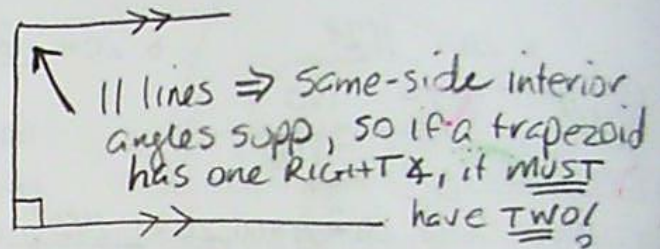 || lines ⇒ same-side interior
angles supp, so if a trapezoid
has one RIGHT ∡, it MUST
have TWO!